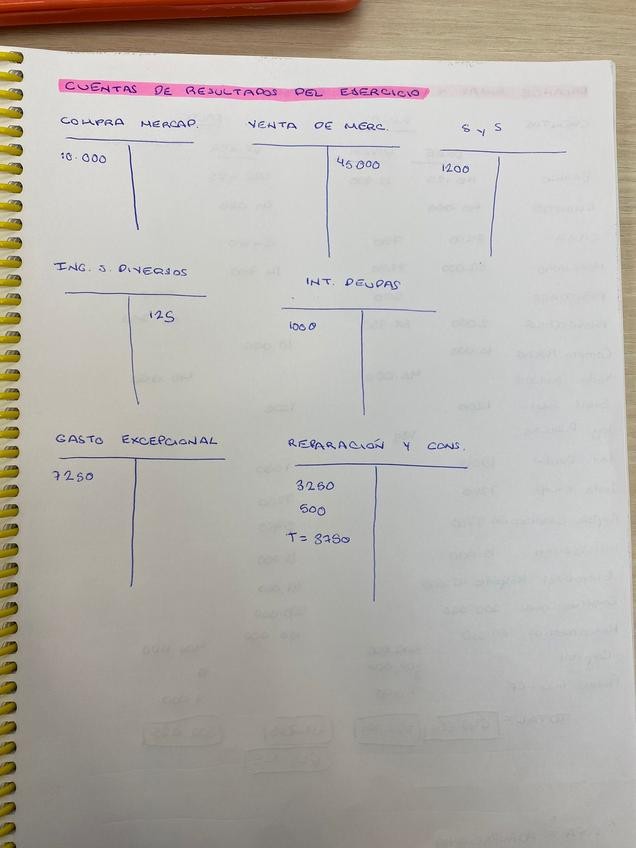 CUENTAS DE RESULTADOS DEL EJERCICIO
COMPRA MERCAD.
10.000
VENTA DE MERC.
45000
S y S
1200
ING. S. DIVERSOS
125
INT. DEUDAS
1000
GASTO EXCEPCIONAL
7250
REPARACIÓN Y CONS.
3250
500
T = 3750